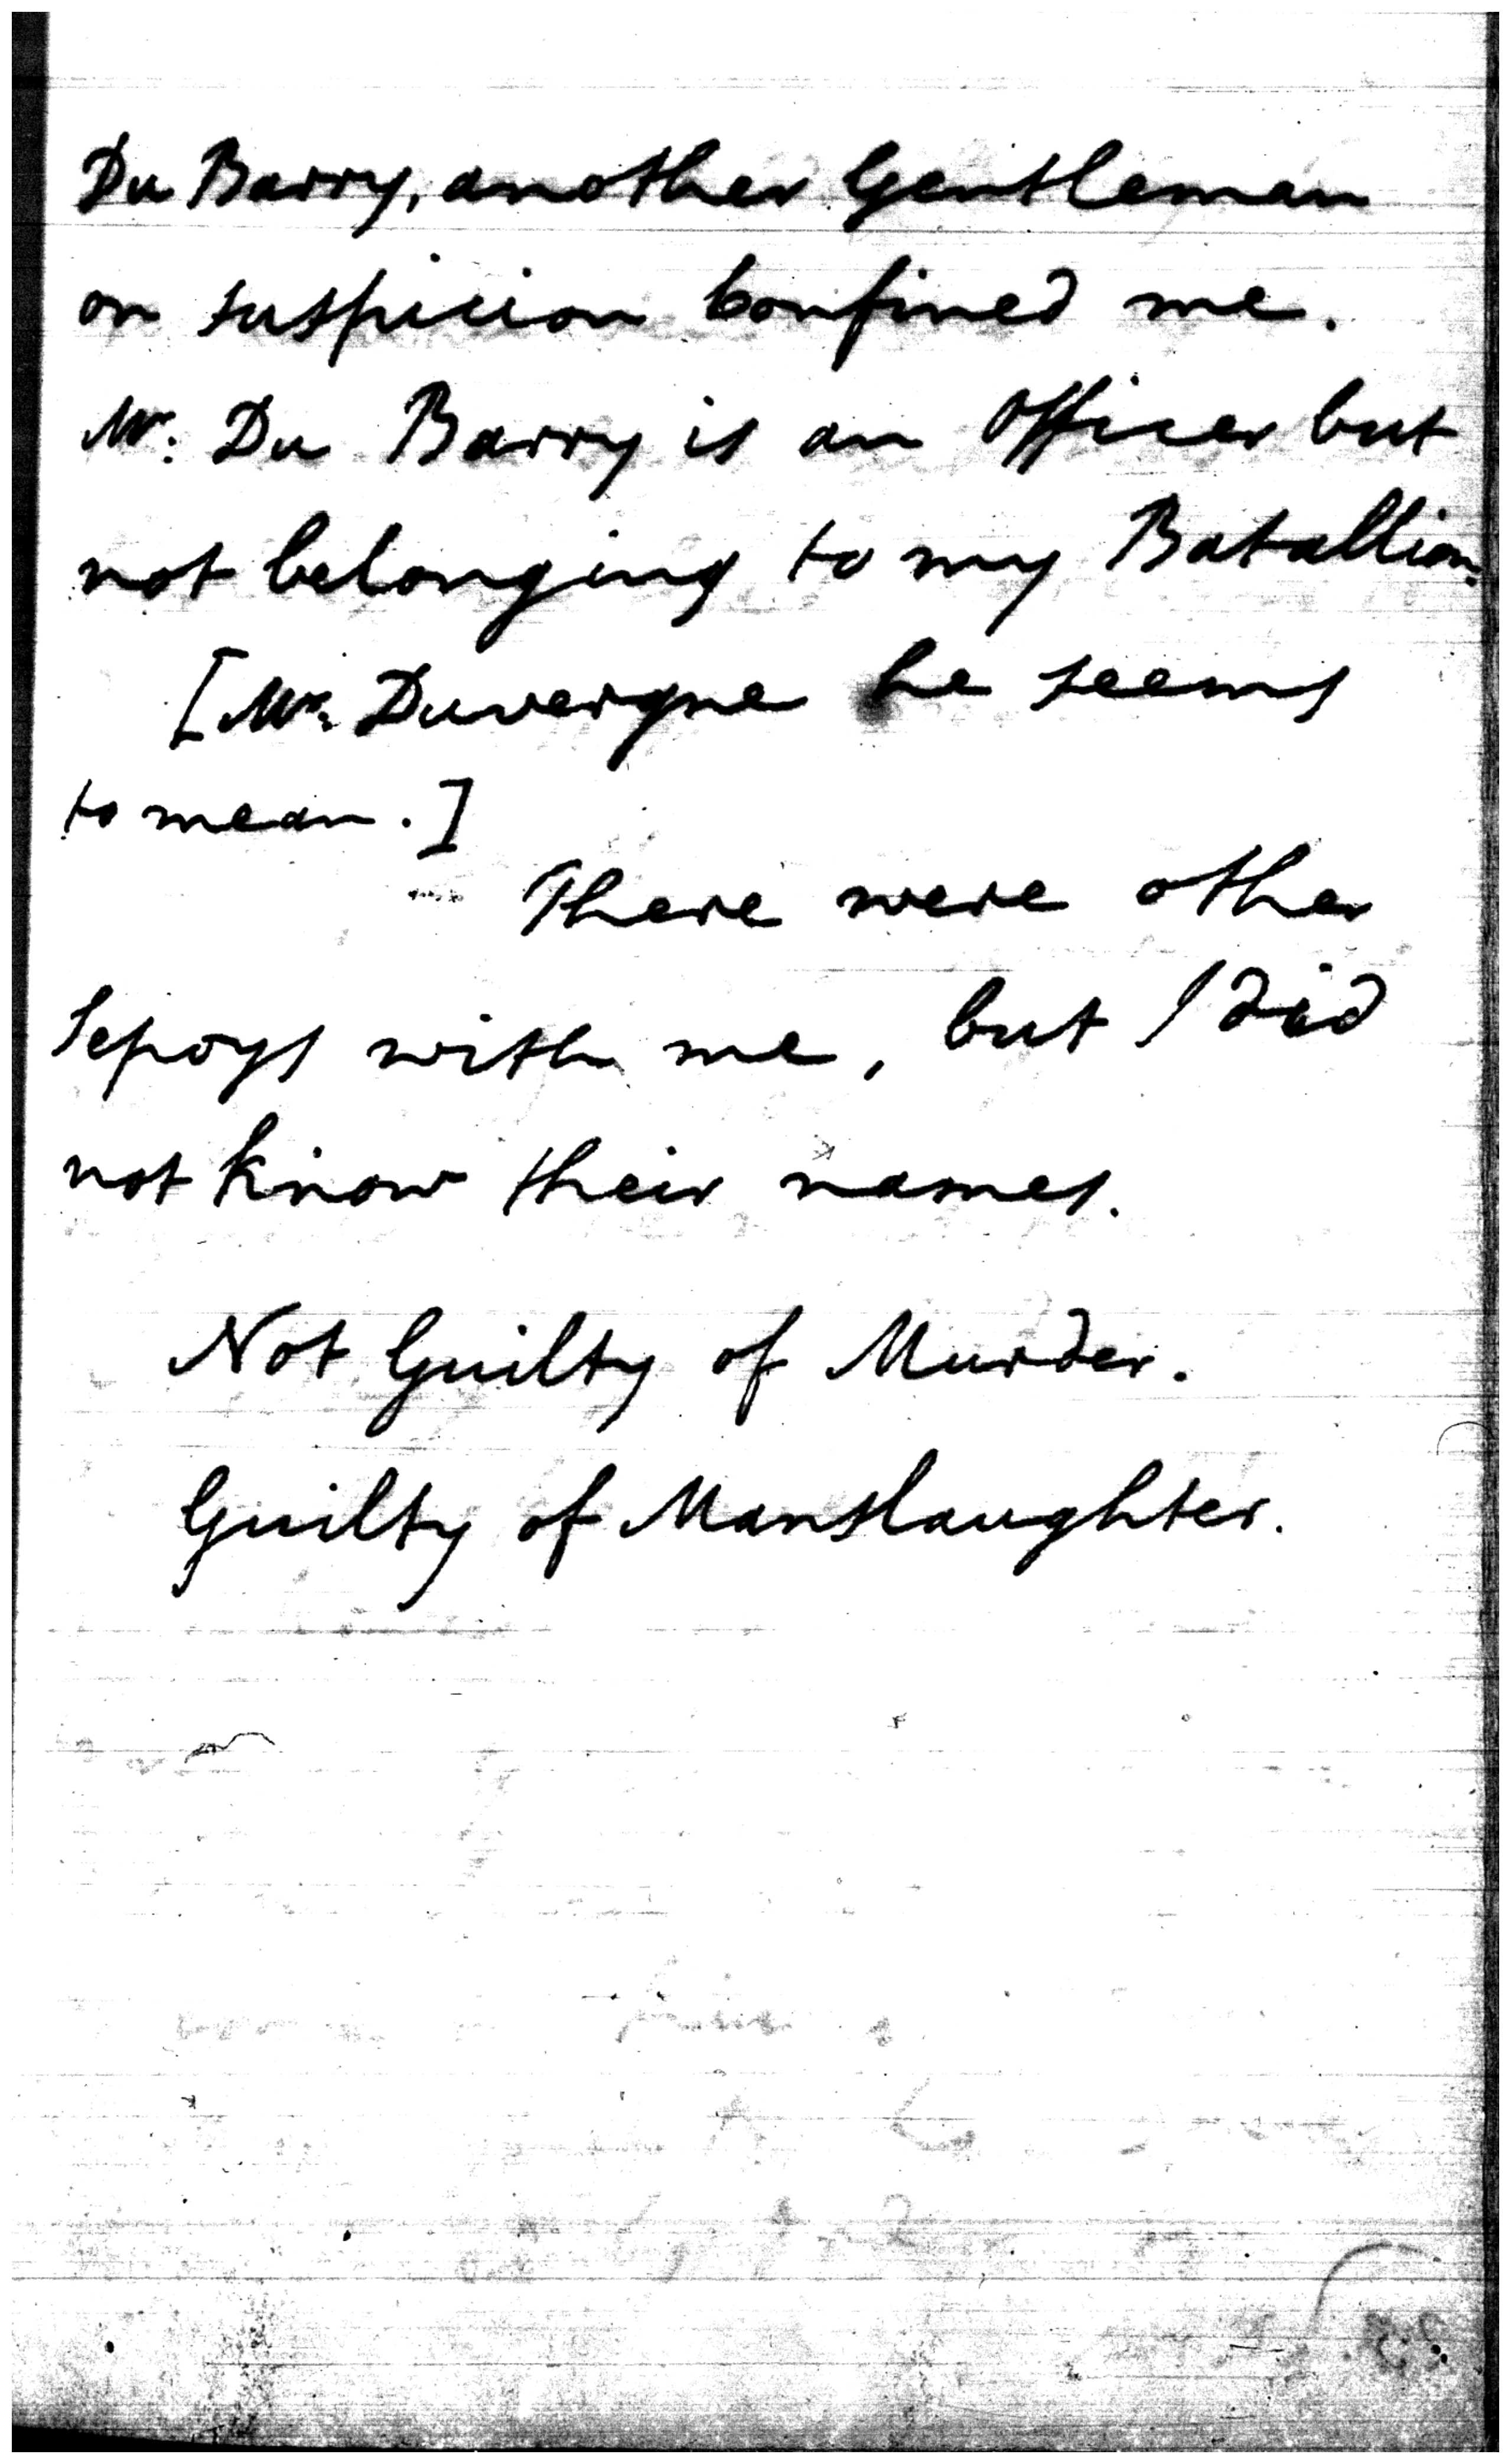 Du Barry, another Gentleman
on suspicion Confined me.
Mr. Du Barry is an Officer but
not belonging to my Batallion.
[Mr. Duvergne he seems
to mean.]
There were other
Sepoys with me, but I did
not know their names.
Not Guilty of Murder.
Guilty of Manslaughter.